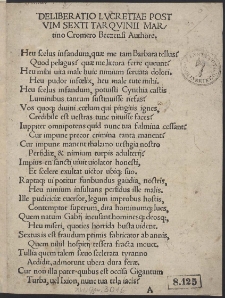 DELIBERATIO LVCRETIAE POST
VIM SEXTI TARQVINII MAR/
tino Cromero Becensi Authore.
Heu scelus infandum, quæ me tam Barbara tellus
Quod pelagus quæ me litora ferre queunt?
Heu mihi vita male nunc nimium servata dolori.
Heu pudor infœlix, heu male
Heu scelus infandum, potuisti Cynthia castis
Luminibus tantum sustinuisse nefas?
Vos quoque diuini cœlum qui pingitis ignes,
Credibile est vestras tunc nituisse faces?
Iuppiter omnipotens quid nunc tua fulmina cessant?
Cur impune precor crimina tanta manent?
Cur impune manent thalamo vestigia nostro
Perfidiæ & nimium turpis adulterij?
Impius en sancti uiuit uiolator honesti,
Et scelere exultat uictor ubique suo.
Raptaque tu potitur furibundus gaudia, nostris,
Heu nimium insultans perfidus ille malis.
Ille pudicitiæ euersor, legum improbus hostis,
Contemptor superum, dira
Quem natum Gabij incusant hominesque deosque,
Heu miseri, quoties horrida busta uident.
Sextus is est fraudum primus fabricator
Quem nihil hospitij tessera fracta mouet.
Tullia quem talem sæuo scelerata tyranno
Aedidit, admorunt ubera dura feræ.
Cur non illa pater quibus est occisa Gigantum
Turba, uel Ixion, nunc tua tela
A
8.125